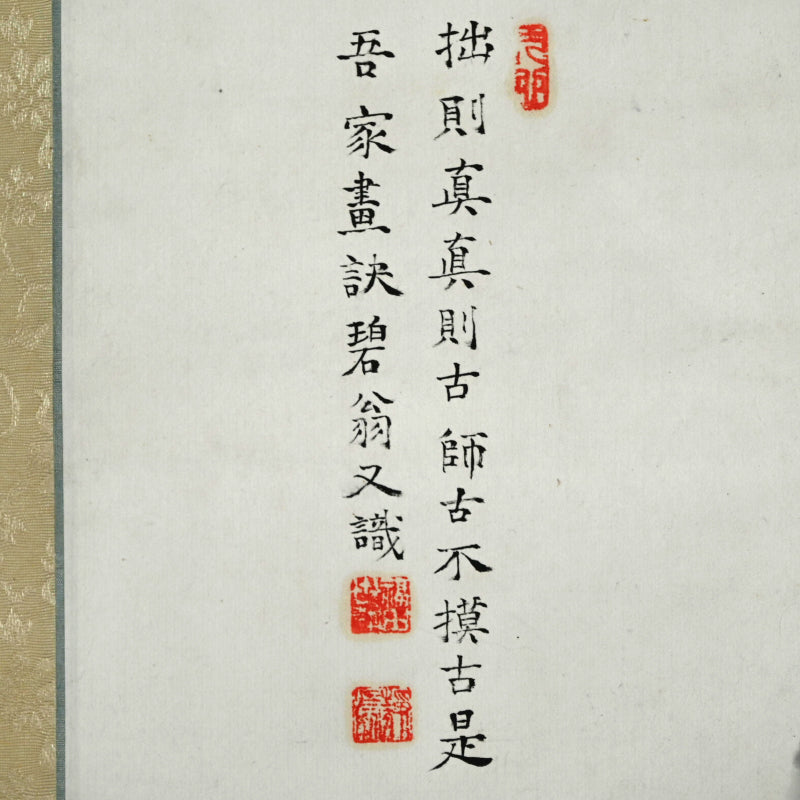 拙則真真則古師古不摸古是
吾家畫訣碧翁又識